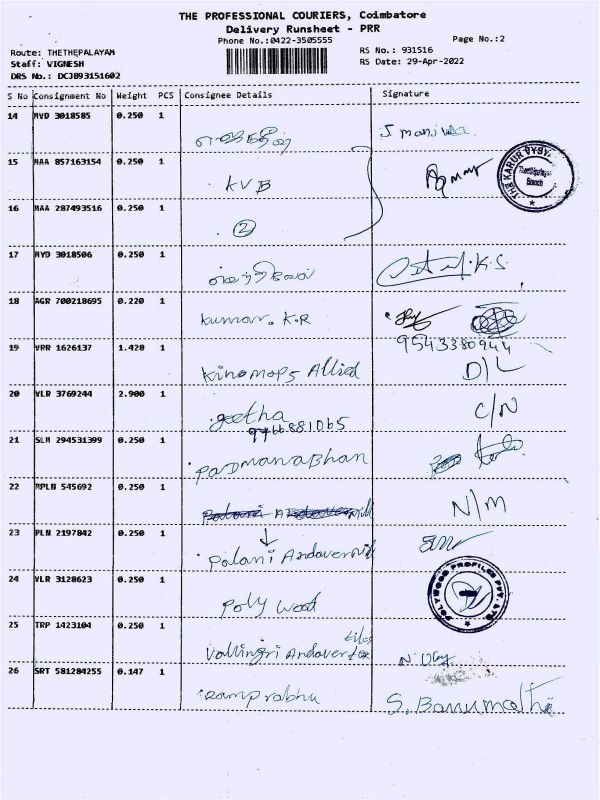 THE PROFESSIONAL COURIERS, Coimbatore
Delivery Runsheet - PRR
Phone No.:0422-3505555 Page No.:2
Route: THETHEPALAYAM RS No.: 931516
Staff: VIGNESH RS Date: 29-Apr-2022
DRS No.: DCJB93151602
S No Consignment No Weight PCS Consignee Details Signature
14 MYD 3018585 0.250 1
15 MAA 857163154 0.250 1
KVB
THE KARUR VYSYA
Branch
16 MAA 287493516 0.250 1
2
17 MYD 3018506 0.250 1
K.S.
18 AGR 700218695 0.220 1
Kumar. K.R
9543380944
19 VRR 1626137 1.420 1
Allied D/L
20 VLR 3769244 2.900 1
geetha C/N
9766881065
21 SLM 294531399 0.250 1
padmanabhan
22 MPLN 545692 0.250 1
N/M
23 PLN 2197842 0.250 1
palani
24 VLR 3128623 0.250 1
POLYWOOD PROFILES PVT. LTD
poly wood
25 TRP 1423104 0.250 1
26 SRT 581284255 0.147 1
ramprabhu S. Banumathi